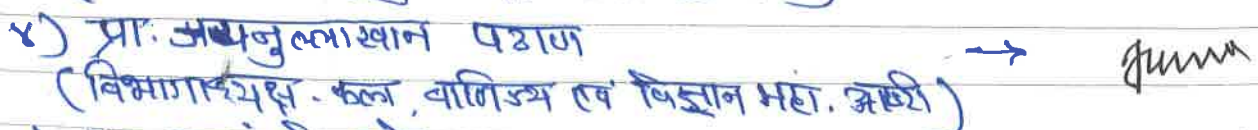 ४) प्रा. अय्यनुल्लाखान पठाण →
(विभागाध्यक्ष. कला, वाणिज्य एवं विज्ञान महा. आष्टी)